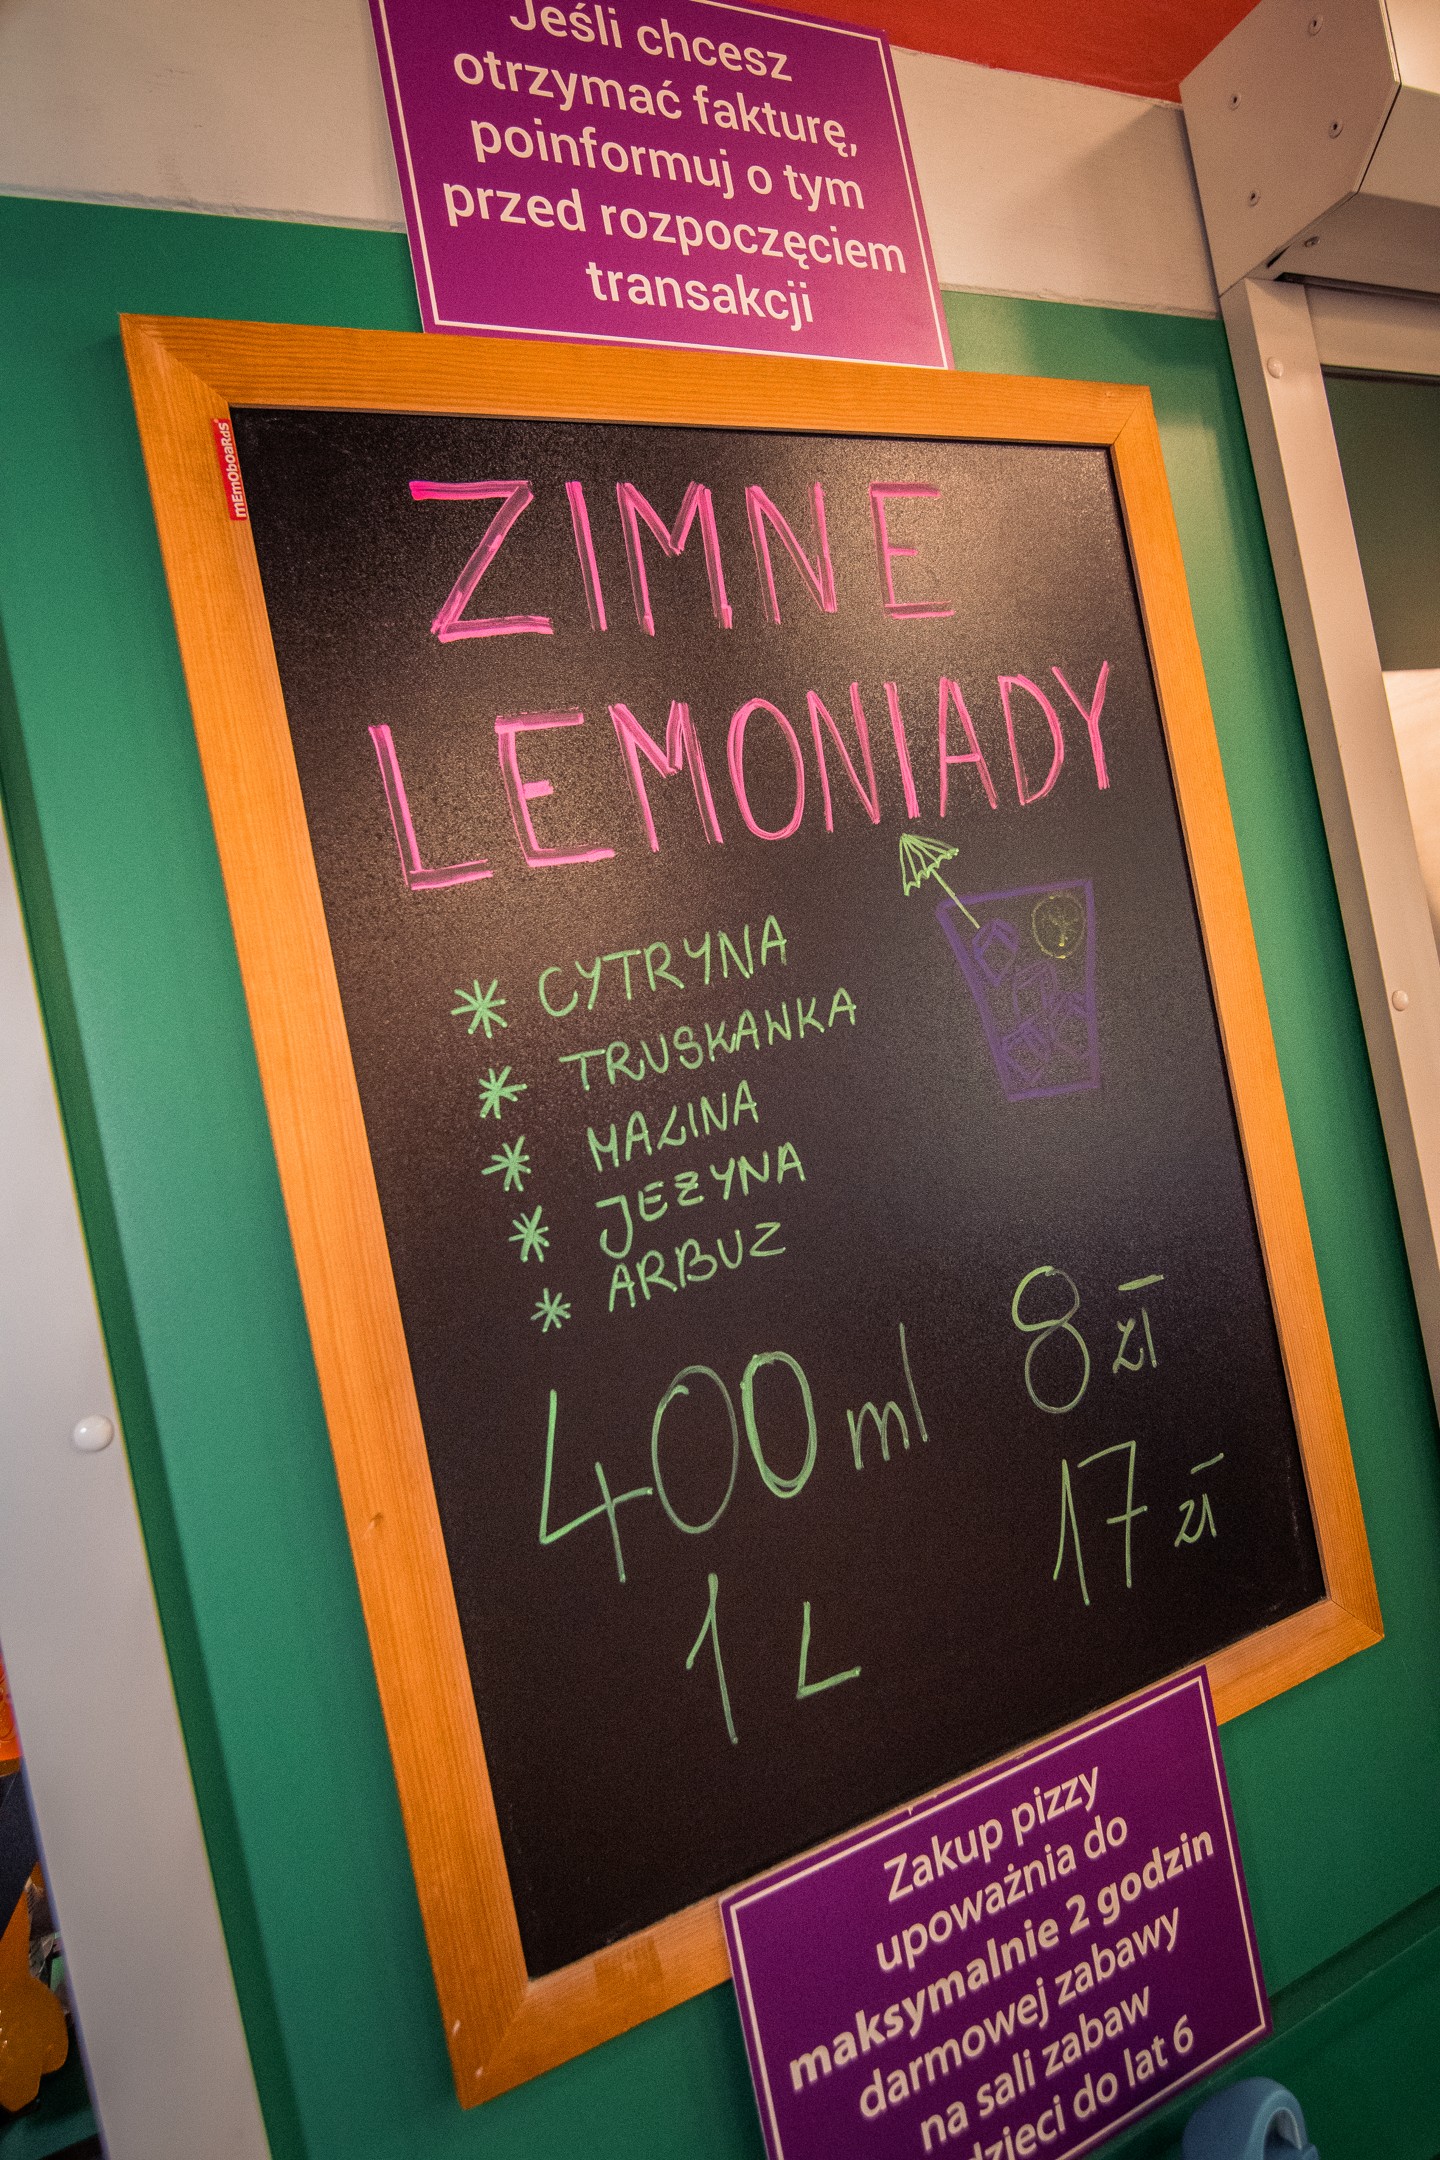 Jeśli chcesz
otrzymać fakturę,
poinformuj o tym
przed rozpoczęciem
transakcji
mEmOboaRdS
ZIMNE
LEMONIADY
* CYTRYNA
* TRUSKAWKA
* MALINA
* JEŻYNA
* ARBUZ
400 ml 8 zł
1 L 17 zł
Zakup pizzy
upoważnia do
maksymalnie 2 godzin
darmowej zabawy
na sali zabaw
dzieci do lat 6